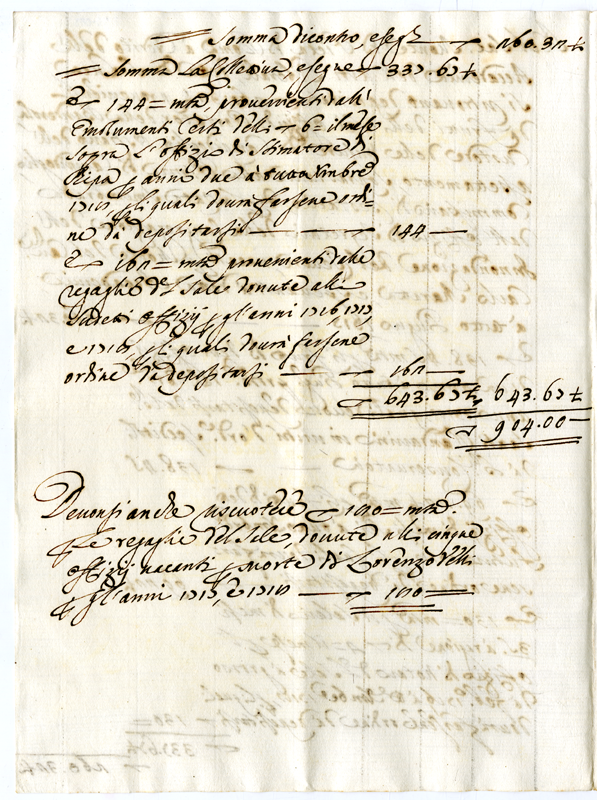 = Somma di contro, e segue — 260.37½
= Somma La Colletiua, e segue — 337.67½
E 144 = mta, prouenienti dall'
Emolumenti Certi delli 6 = il mese
sopra L'offizio di Stimatore di
Ripa p anni due à tutto Xmbre
1718, p li quali dourà farsene ordi=
ne da depositarsi — 144 —
E 162 = mta prouenienti dalle
regaglie del Sale douute alli
sudetti Offizij p gl'anni 1716, 1717,
e 1718, p li quali dourà farsene
ordine da depositarsi — 162 —
643.67½ 643.67½
904.00 —
Deuonsi anche riscuotere 1010 = mta
p Le regaglie del Sale, douute alli cinque
Offizij uacanti p morte di Lorenzo
p gl'anni 1717, e 1718 — 1010 =